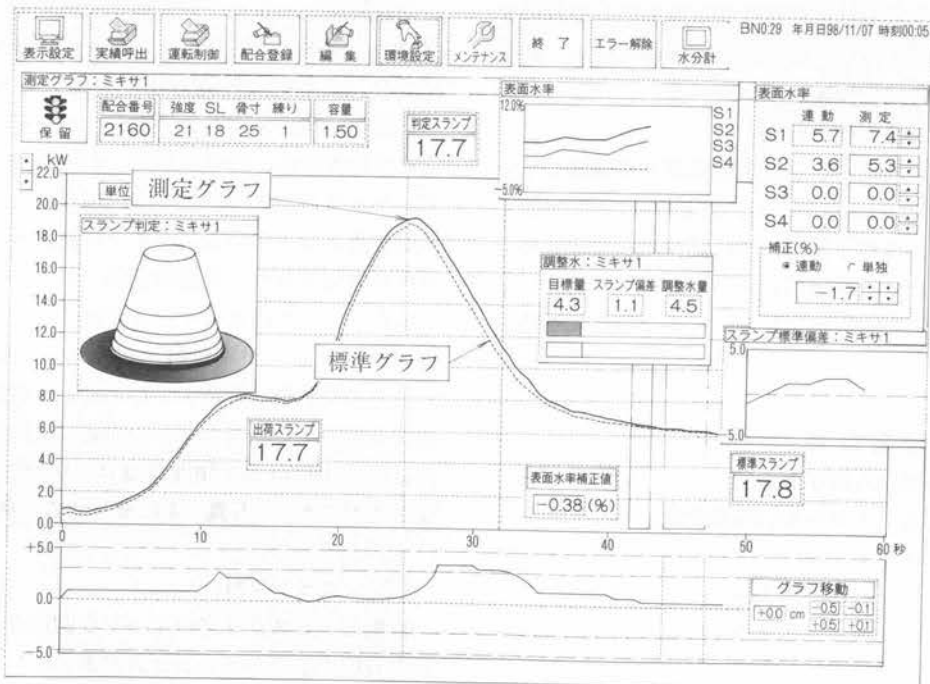 BN0:29 年月日98/11/07 時刻00:05
表示設定 実績呼出 運転制御 配合登録 編集 環境設定 メンテナンス 終了 エラー解除 水分計
測定グラフ:ミキサ1
保留
配合番号 強度 SL 骨寸 練り 容量
2160 21 18 25 1 1.50
判定スランプ
17.7
表面水率
12.0%
-5.0%
S1
S2
S3
S4
表面水率
連動 測定
S1 5.7 7.4
S2 3.6 5.3
S3 0.0 0.0
S4 0.0 0.0
補正(%)
連動 単独
-1.7
kW
22.0
20.0
18.0
16.0
14.0
12.0
10.0
8.0
6.0
4.0
2.0
0.0
単位
測定グラフ
スランプ判定:ミキサ1
標準グラフ
調整水:ミキサ1
目標量 スランプ偏差 調整水量
4.3 1.1 4.5
スランプ標準偏差:ミキサ1
5.0
5.0
出荷スランプ
17.7
表面水率補正値
-0.38 (%)
標準スランプ
17.8
0 10 20 30 40 50 60 秒
+5.0
0.0
-5.0
グラフ移動
+0.0 cm -0.5 -0.1
+0.5 +0.1